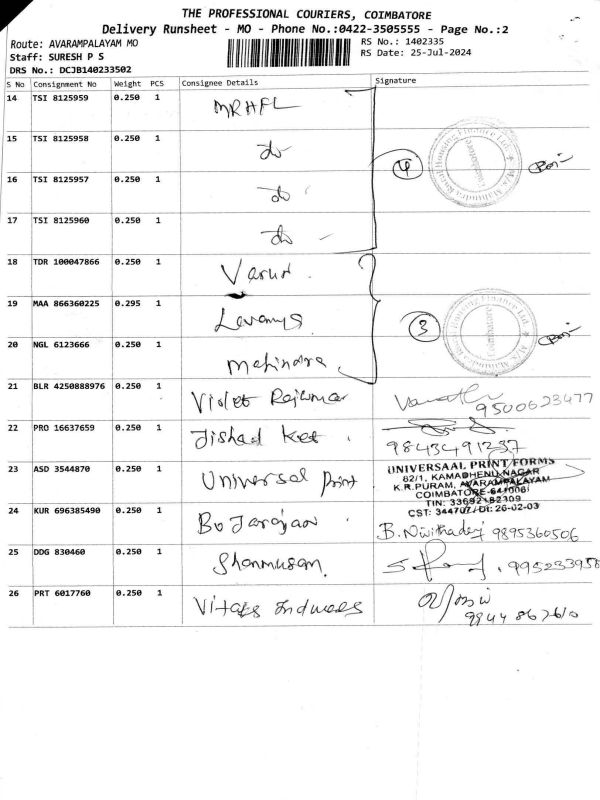 THE PROFESSIONAL COURIERS, COIMBATORE
Delivery Runsheet - MO - Phone No.:0422-3505555 - Page No.:2
Route: AVARAMPALAYAM MO
RS No.: 1402335
Staff: SURESH P S
RS Date: 25-Jul-2024
DRS No.: DCJB140233502
S No Consignment No Weight PCS Consignee Details Signature
14 TSI 8125959 0.250 1 MRHFL
15 TSI 8125958 0.250 1 do
16 TSI 8125957 0.250 1 do
4
17 TSI 8125960 0.250 1 do
18 TDR 100047866 0.250 1 Varun
19 MAA 866360225 0.295 1
3
20 NGL 6123666 0.250 1 Mahindra
21 BLR 4250888976 0.250 1 Violet 9500623477
22 PRO 16637659 0.250 1 9843491237
23 ASD 3544870 0.250 1 Universal Print
UNIVERSAAL PRINT FORMS
82/1, KAMADHENU NAGAR
K.R.PURAM, AVARAMPALAYAM
COIMBATORE-641006
TIN: 33692182309
CST: 344707/Dt: 26-02-03
24 KUR 696385490 0.250 1 9895360506
25 DDG 830460 0.250 1 Shanmugam 995233958
26 PRT 6017760 0.250 1